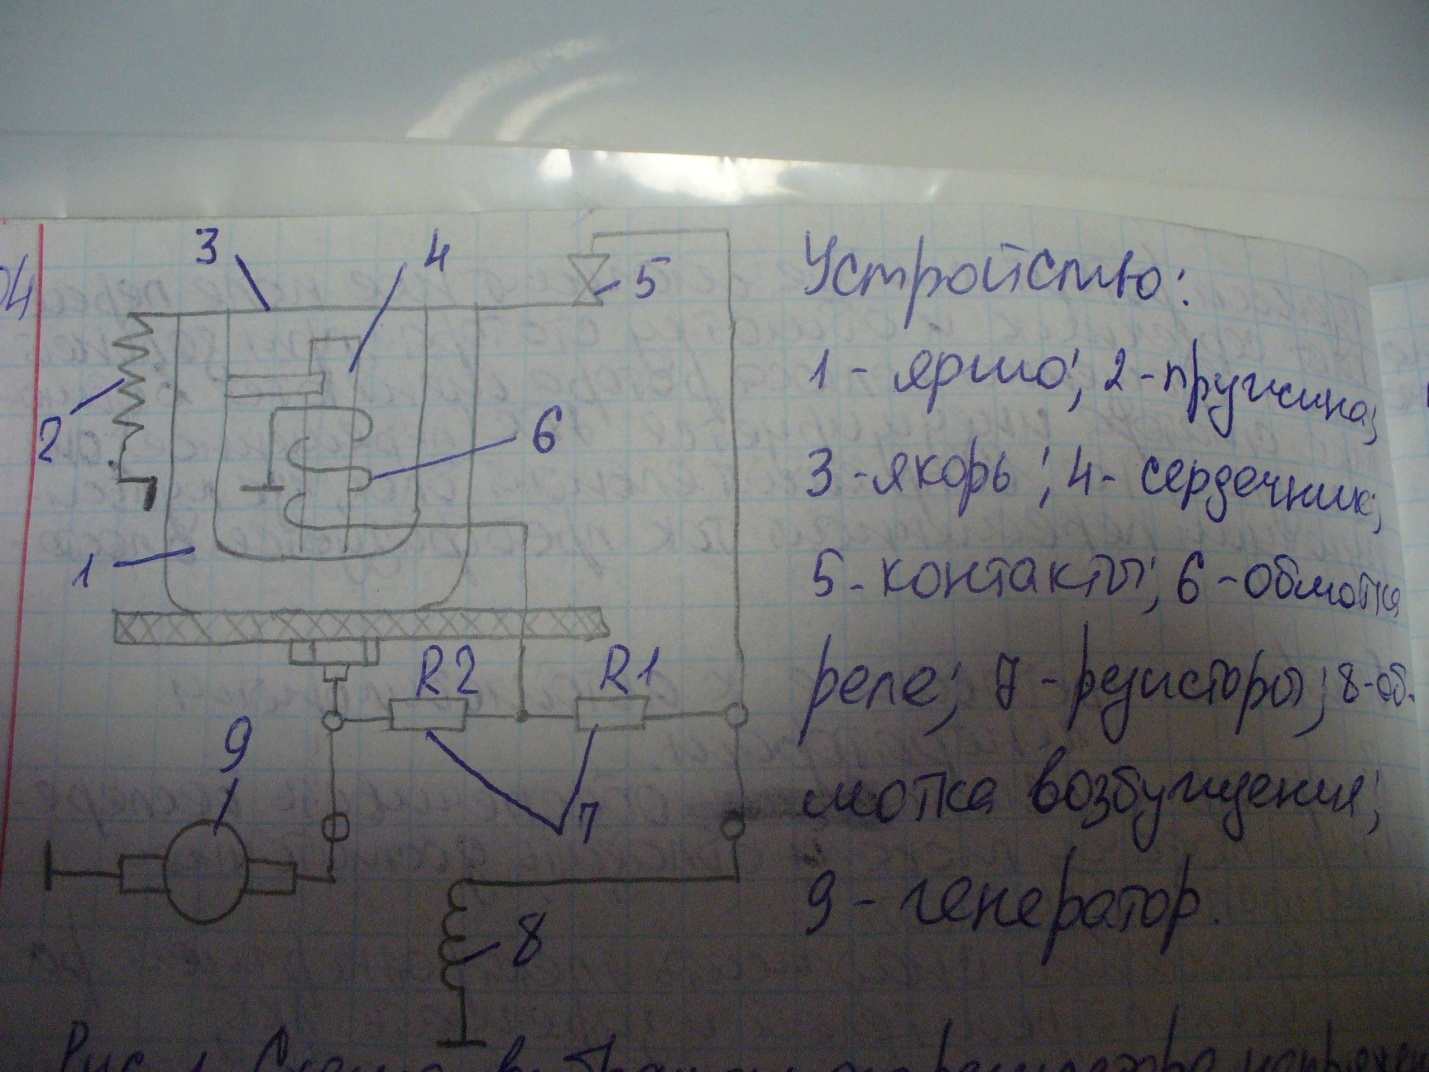 3
4
5
Устройство:
1 - ярмо; 2-пружина;
2
6
3 -якорь; 4- сердечник;
1
5-контакты; 6 -обмотка
R2
R1
реле; 7 -резисторы; 8-об-
9
7
мотка возбуждения;
8
9 - генератор.
Рис. 1 Схема регулятора напряжен